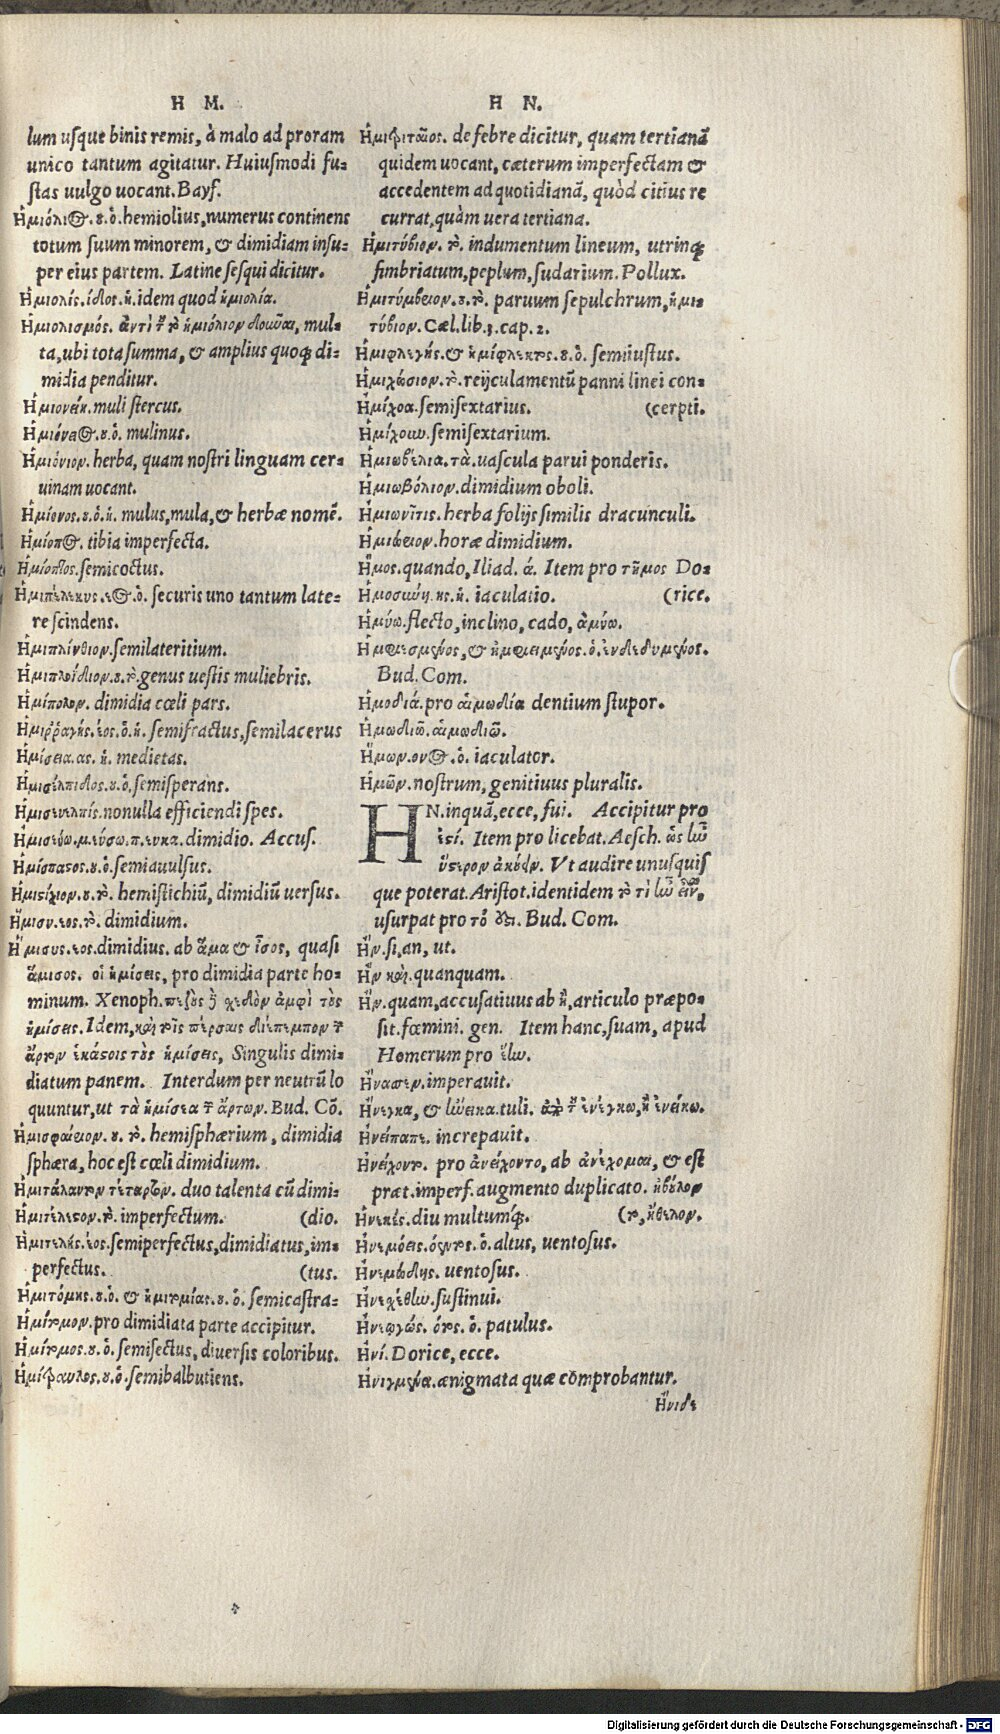 H M.
lum usque binis remis, à malo ad proram
unico tantum agitatur. Huiusmodi fu-
stas uulgo uocant. Bayf.
Ἡμιόλιος. ου. ὁ. hemiolius, numerus continens
totum suum minorem, & dimidiam insu-
per eius partem. Latine sesqui dicitur.
Ἡμιολίς. ίδος. ἡ. idem quod ἡμιολία.
Ἡμιολισμός. ἀντὶ τοῦ τὸ ἡμιόλιον δοκῶαι, mul-
ta, ubi tota summa, & amplius quoq; di-
midia penditur.
Ἡμιονεία. muli stercus.
Ἡμιόνειος. ου. ὁ. mulinus.
Ἡμιόνιον. herba, quam nostri linguam cer-
uinam uocant.
Ἡμίονος. ου. ὁ. ἡ. mulus, mula, & herbæ nomẽ.
Ἡμίοπος. tibia imperfecta.
Ἡμίοπτος. semicoctus.
Ἡμιπέλεκυς. εος. ὁ. securis uno tantum late-
re scindens.
Ἡμιπλίνθιον. semilateritium.
Ἡμιπλοίδιον. ου. τὸ. genus uestis muliebris.
Ἡμίπολον. dimidia cœli pars.
Ἡμιῤῥαγής. έος. ὁ. ἡ. semifractus, semilacerus
Ἡμίσεια. ας. ἡ. medietas.
Ἡμισέλπιδος. ου. ὁ. semisperans.
Ἡμισευελπίς. nonulla efficiendi spes.
Ἡμισεύω. μ. εύσω. π. ευκα. dimidio. Accus.
Ἡμίσπαστος. ου. ὁ. semiauulsus.
Ἡμιστίχιον. ου. τὸ. hemistichiũ, dimidiũ uersus.
Ἥμισυ. εος. τὸ. dimidium.
Ἥμισυς. εος. dimidius. ab ἅμα & ἴσος, quasi
ἅμισος. οἱ ἡμίσεις, pro dimidia parte ho-
minum. Xenoph. πεζοὺς ἢ χεδὸν ἀμφὶ τοὺς
ἡμίσεις. Idem, καὶ τοῖς πέρσαις διέπεμπον τῶν
ἄρτων ἑκάστοις τοὺς ἡμίσεις, Singulis dimi-
diatum panem. Interdum per neutrũ lo
quuntur, ut τὰ ἡμίσεα τῶν ἄρτων. Bud. Cõ.
Ἡμισφαίειον. ου. τὸ. hemisphærium, dimidia
sphæra, hoc est cœli dimidium.
Ἡμιτάλαντον τέταρτον. duo talenta cũ dimi-
Ἡμιτέλεστον. τὸ. imperfectum. (dio.
Ἡμιτελής. έος. semiperfectus, dimidiatus, im-
perfectus. (tus.
Ἡμιτόμης. ου. ὁ. & ἡμιτομίας. ου. ὁ. semicastra-
Ἡμίτομον. pro dimidiata parte accipitur.
Ἡμίτομος. ου. ὁ. semisectus, diuersis coloribus.
Ἡμίτραυλος. ου. ὁ. semibalbutiens.
H N.
Ἡμιτριταῖος. de febre dicitur, quam tertianã
quidem uocant, cæterum imperfectam &
accedentem ad quotidianã, quòd citius re
currat, quàm uera tertiana.
Ἡμιτύβιον. τὸ. indumentum lineum, utrinq;
fimbriatum, peplum, sudarium. Pollux.
Ἡμιτύμβειον. ου. τὸ. paruum sepulchrum, ἡμι-
τύβιον. Cæl. lib. 3. cap. 2.
Ἡμιφλεγής. & ἡμίφλεκτος. ου. ὁ. semiustus.
Ἡμιχώσιον. τὸ. reijculamentũ panni linei con-
Ἡμίχοα. semisextarius. (cerpti.
Ἡμίχουν. semisextarium.
Ἡμιωβέλια. τὰ. uascula parui ponderis.
Ἡμιωβόλιον. dimidium oboli.
Ἡμιωνῖτις. herba folijs similis dracunculi.
Ἡμιώειον. horæ dimidium.
Ἦμος. quando, Iliad. ά. Item pro τῆμος Do-
Ἡμοσύνη. ης. ἡ. iaculatio. (rice.
Ἡμύω. flecto, inclino, cado, ἀμύω.
Ἠμφιεσμένος, & ἠμφιειμένος. ὁ. ἐνδεδυμένος.
Bud. Com.
Ἡμοδιά. pro αἱμωδία dentium stupor.
Ἡμωδιῶ. αἱμωδιῶ.
Ἥμων. ονος. ὁ. iaculator.
Ἡμῶν. nostrum, genitiuus pluralis.
HN. inquã, ecce, fui. Accipitur pro
ἐστί. Item pro licebat. Aesch. ὡς ἦν
ὕστερον ἀκούειν. Vt audire unusquis
que poterat. Aristot. identidem τὸ τί ἦν εἶναι,
usurpat pro τό ἐστι. Bud. Com.
Ἤν. si, an, ut.
Ἢν καὶ. quanquam.
Ἥν. quam, accusatiuus ab ἥ, articulo præpo-
sit. fœmini. gen. Item hanc, suam, apud
Homerum pro ἕην.
Ἤνασεν. imperauit.
Ἤνεγκα, & ἤνεικα. tuli. ἀπὸ τοῦ ἐνέγκω, ἢ ἐνείκω.
Ἠνείπαπε. increpauit.
Ἠνείχοντο. pro ἀνείχοντο, ab ἀνέχομαι, & est
præt. imperf. augmento duplicato. ἠβούλον
Ἠνεκές. diu multumq;. (το, ἤθελον.
Ἠνεμόεις. όεντος. ὁ. altus, uentosus.
Ἠνεμώδης. uentosus.
Ἠνεχέθην. sustinui.
Ἠνεῳγώς. ότος. ὁ. patulus.
Ἠνί. Dorice, ecce.
Ἠνιγμένα. ænigmata quæ cõprobantur.
Ἤνιδε
Digitalisierung gefördert durch die Deutsche Forschungsgemeinschaft - DFG